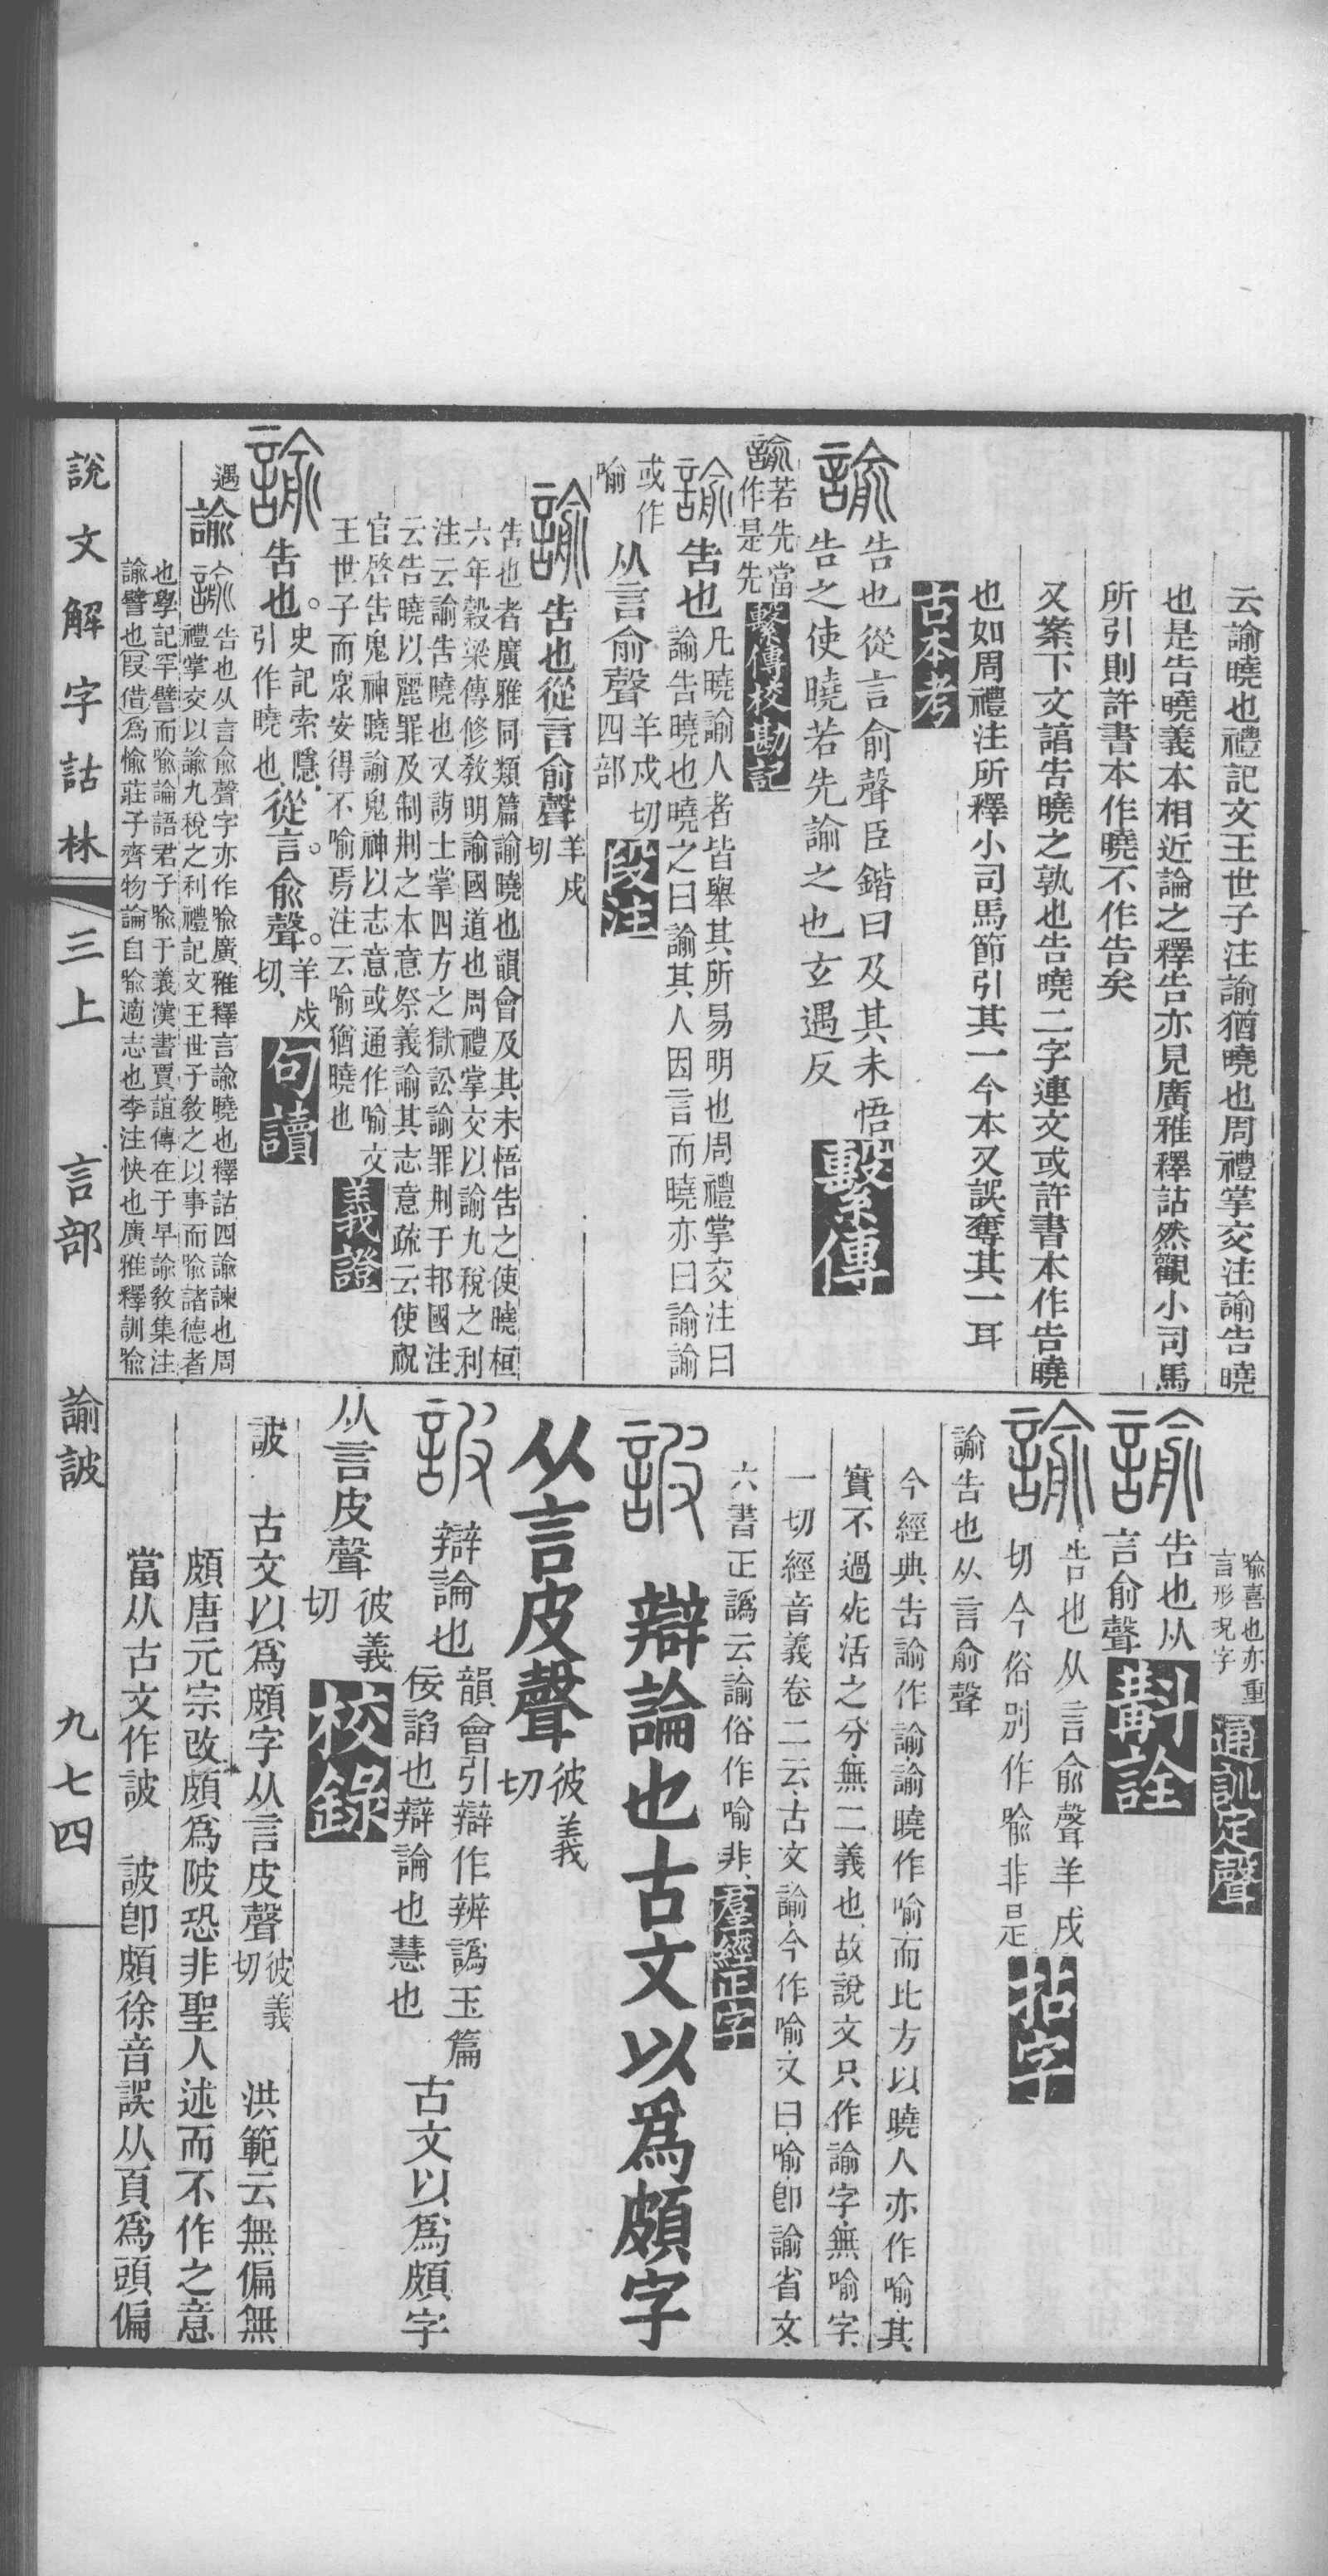 云諭曉也禮記文王世子注諭猶曉也周禮掌交注諭告曉
也是告曉義本相近論之釋告亦見廣雅釋詁然觀小司馬
所引則許書本作曉不作告矣
又案下文誥告曉之孰也告曉二字連文或許書本作告曉
也如周禮注所釋小司馬節引其一今本又誤奪其一耳
古本考
諭
告也從言俞聲臣鍇曰及其未悟
告之使曉若先諭之也玄遇反
繫傳
諭若先當
作是先
繫傳校勘記
諭告也
凡曉諭人者皆舉其所易明也周禮掌交注曰
諭告曉也曉之曰諭其人因言而曉亦曰諭諭
或作
喻
从言俞聲
羊戍切
四部
段注
諭告也從言俞聲
羊戍
切
告也者廣雅同類篇諭曉也韻會及其未悟告之使曉桓
六年穀梁傳修敎明諭國道也周禮掌交以諭九稅之利
注云諭告曉也又訝士掌四方之獄訟諭罪刑于邦國注
云告曉以麗罪及制刑之本意祭義諭其志意疏云使祝
官啓告鬼神曉諭鬼神以志意或通作喻文
王世子而衆安得不喻焉注云喻猶曉也
義證
諭告也。
史記索隱、
引作曉也、
從言。俞聲。
羊戍
切、
句讀
遇
諭
諭告也从言俞聲字亦作喻廣雅釋言諭曉也釋詁四諭諫也周
禮掌交以諭九稅之利禮記文王世子敎之以事而喻諸德者
也學記罕譬而喻論語君子喻于義漢書賈誼傳在于早諭敎集注
諭譬也叚借爲愉莊子齊物論自喻適志也李注快也廣雅釋訓喻
喻喜也亦重
言形況字
通訓定聲
諭
告也从
言俞聲
斠詮
諭
告也从言俞聲羊戍
切今俗別作喻非是
拈字
諭告也从言俞聲
今經典告諭作諭、諭曉作喻、而比方以曉人亦作喻、其
實不過死活之分、無二義也、故說文只作諭字、無喻字、
一切經音義卷二云、古文諭、今作喻、又曰、喻、卽諭省文、
六書正譌云、諭俗作喻非、
羣經正字
詖 辯論也古文以爲頗字
从言皮聲
彼義
切
詖
辯論也
韻會引辯作辨譌玉篇
佞諂也辯論也慧也
古文以爲頗字
从言皮聲
彼義
切
校錄
詖 古文以爲頗字从言皮聲
彼義
切
洪範云無偏無
頗唐元宗改頗爲陂恐非聖人述而不作之意
當从古文作詖 詖卽頗徐音誤从頁爲頭偏
說文解字詁林
三上 言部 諭詖 九七四